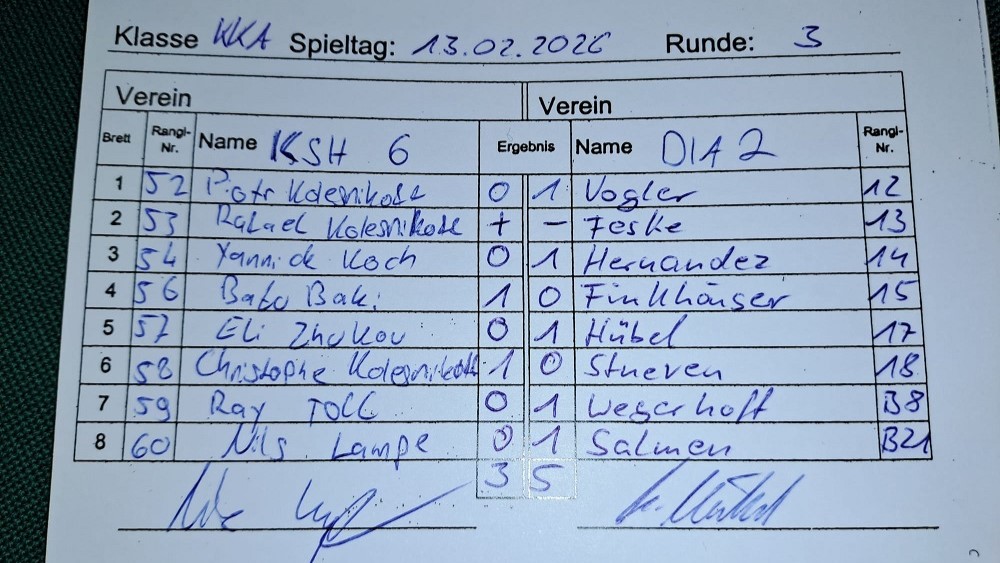 Klasse KKA Spieltag: 13.02.2026 Runde: 3
Verein Verein
Brett Rangl-Nr. Name KSH 6 Ergebnis Name DIA 2 Rangl-Nr.
1 52 Piotr Kolesnikott 0 1 Vogler 12
2 53 Rafael Kolesnikott + - Feske 13
3 54 Yannick Koch 0 1 Hernandez 14
4 56 Babo Baki 1 0 Finkhäuser 15
5 57 Eli Zhukov 0 1 Hübel 17
6 58 Christophe Kolesnikott 1 0 Stueven 18
7 59 Ray Toll 0 1 Wegerhoff B8
8 60 Nils Lampe 0 1 Salmen B21
3 5